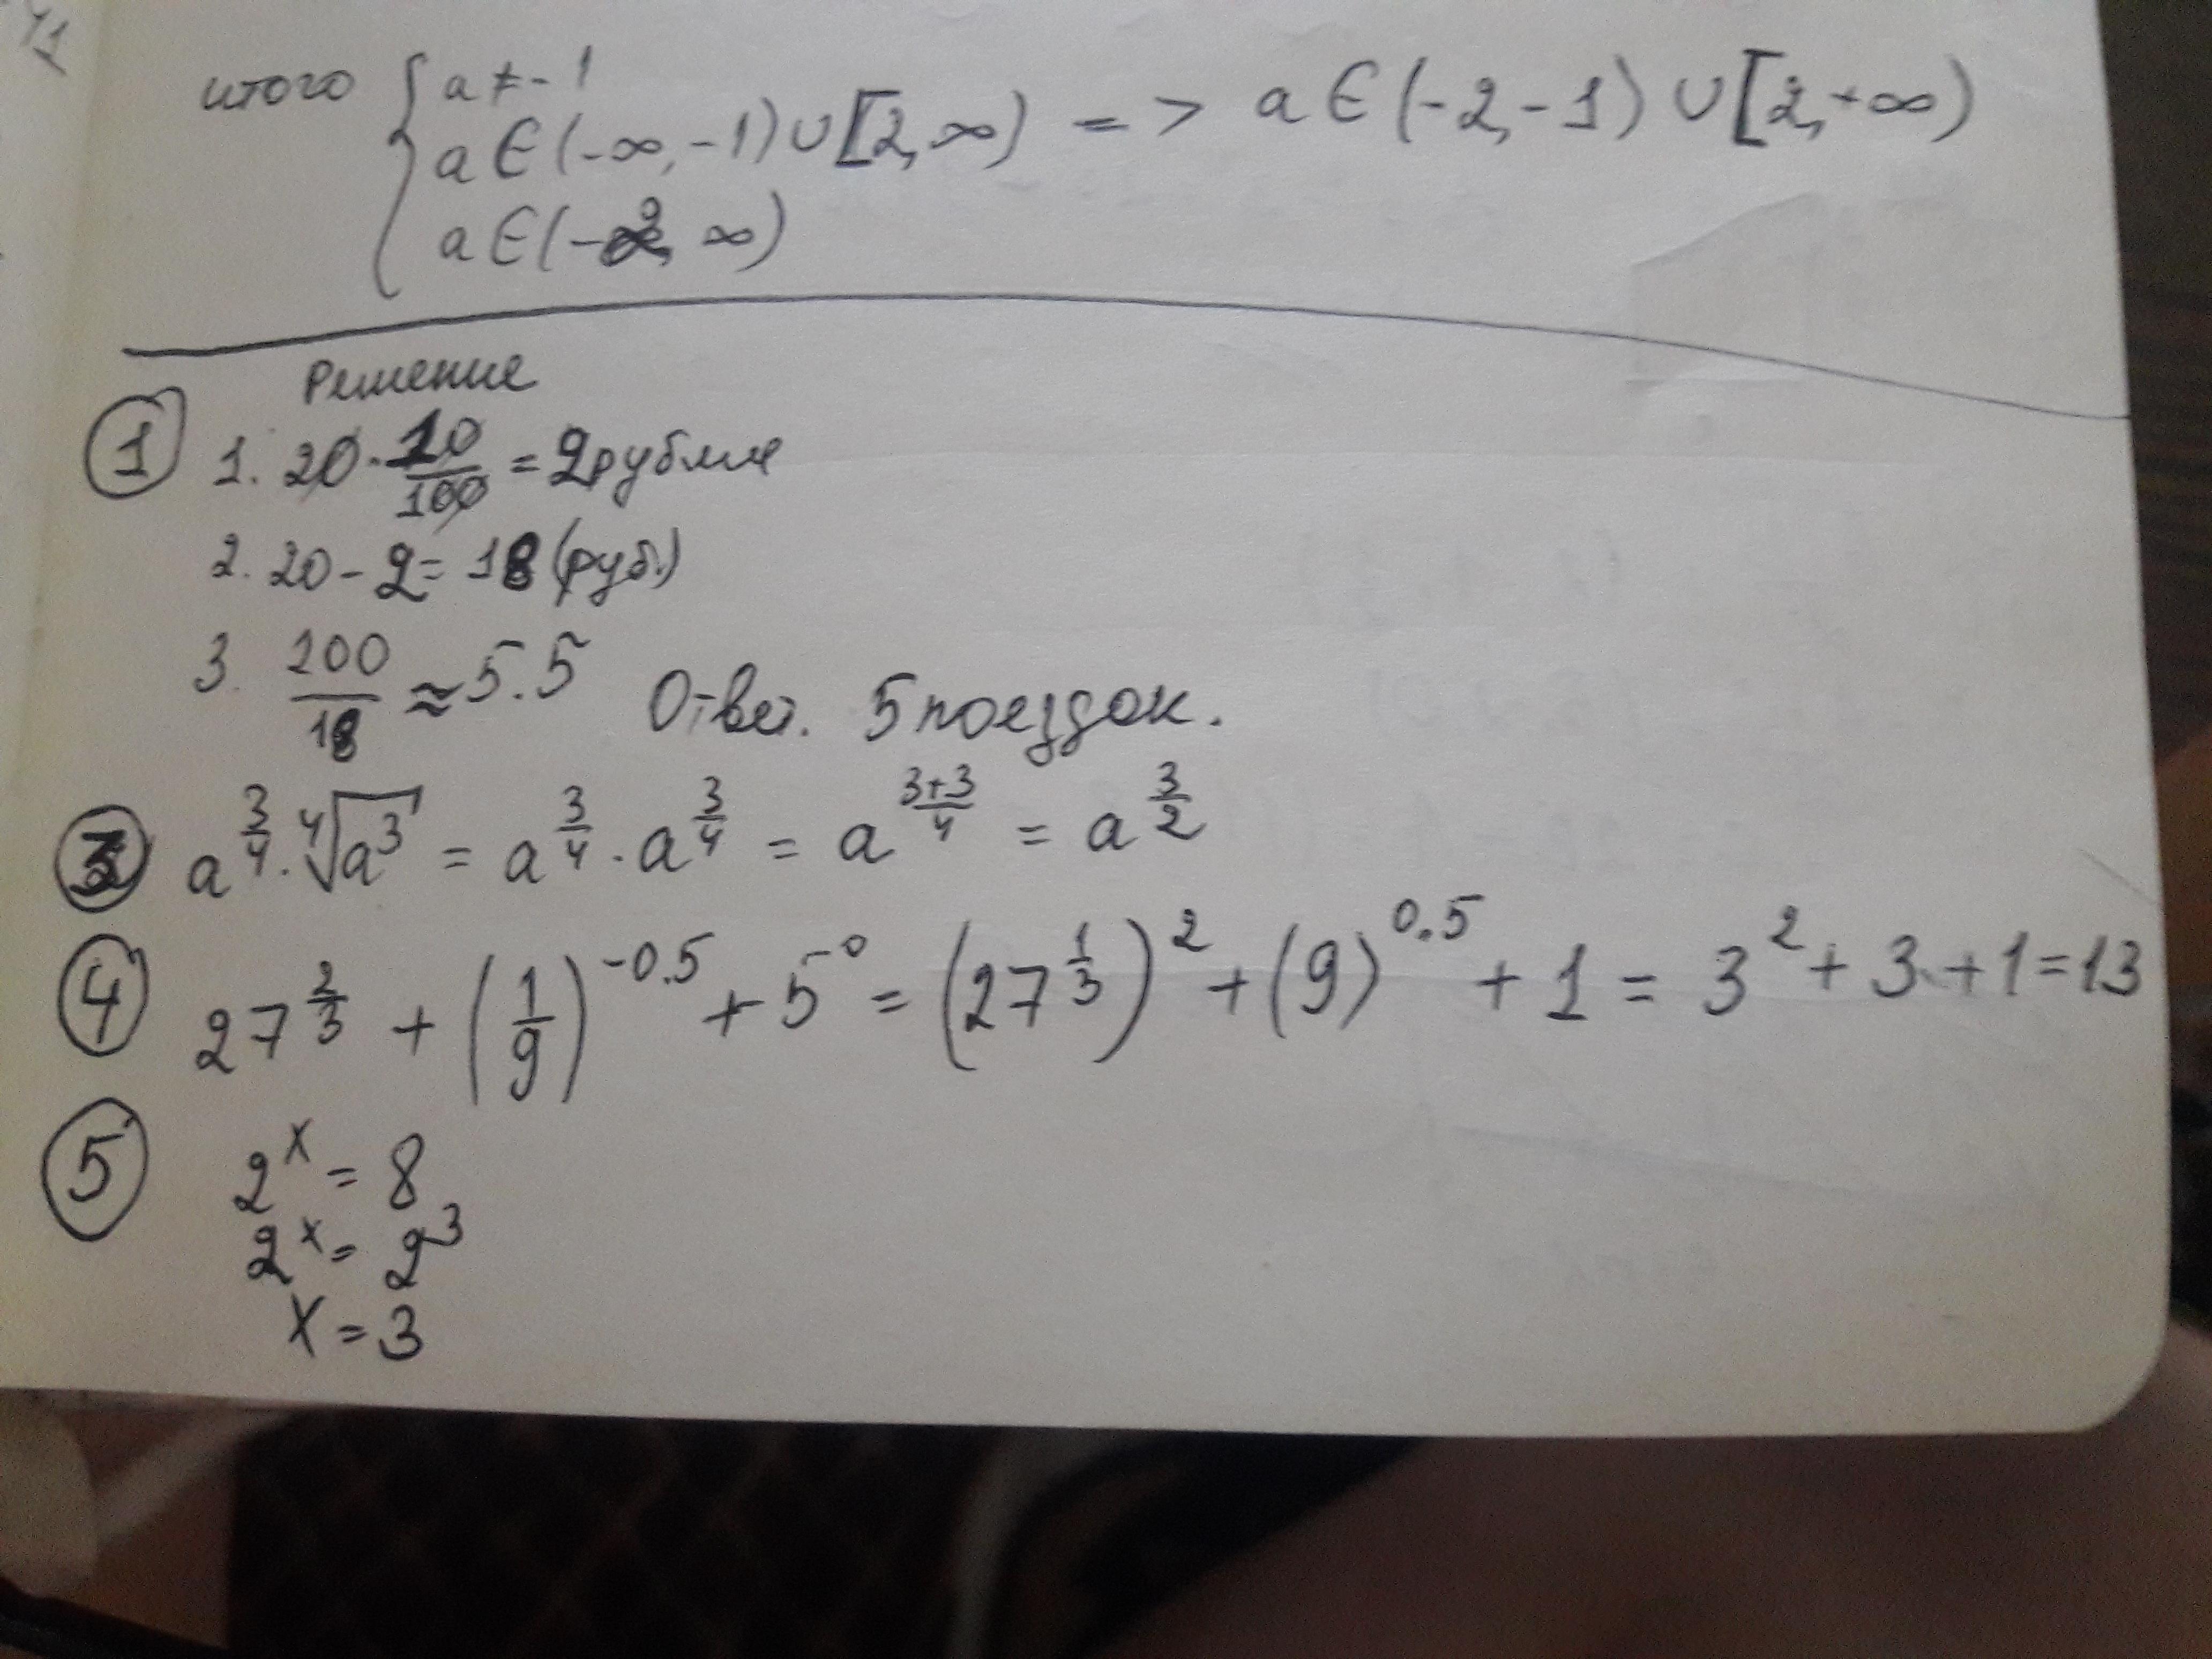 41
итого { a ≠ -1
a ∈ (-∞, -1) ∪ [2, ∞) => a ∈ (-2, -1) ∪ [2, +∞)
a ∈ (-2, ∞)
Решение
① 1. 20 · 10/100 = 2 рубля
2. 20 - 2 = 18 (руб.)
3. 100/18 ≈ 5.5 Ответ. 5 поездок.
③ a^(3/4) · ∜(a^3) = a^(3/4) · a^(3/4) = a^((3+3)/4) = a^(3/2)
④ 27^(2/3) + (1/9)^(-0.5) + 5^0 = (27^(1/3))^2 + (9)^(0.5) + 1 = 3^2 + 3 + 1 = 13
⑤ 2^x = 8
2^x = 2^3
x = 3